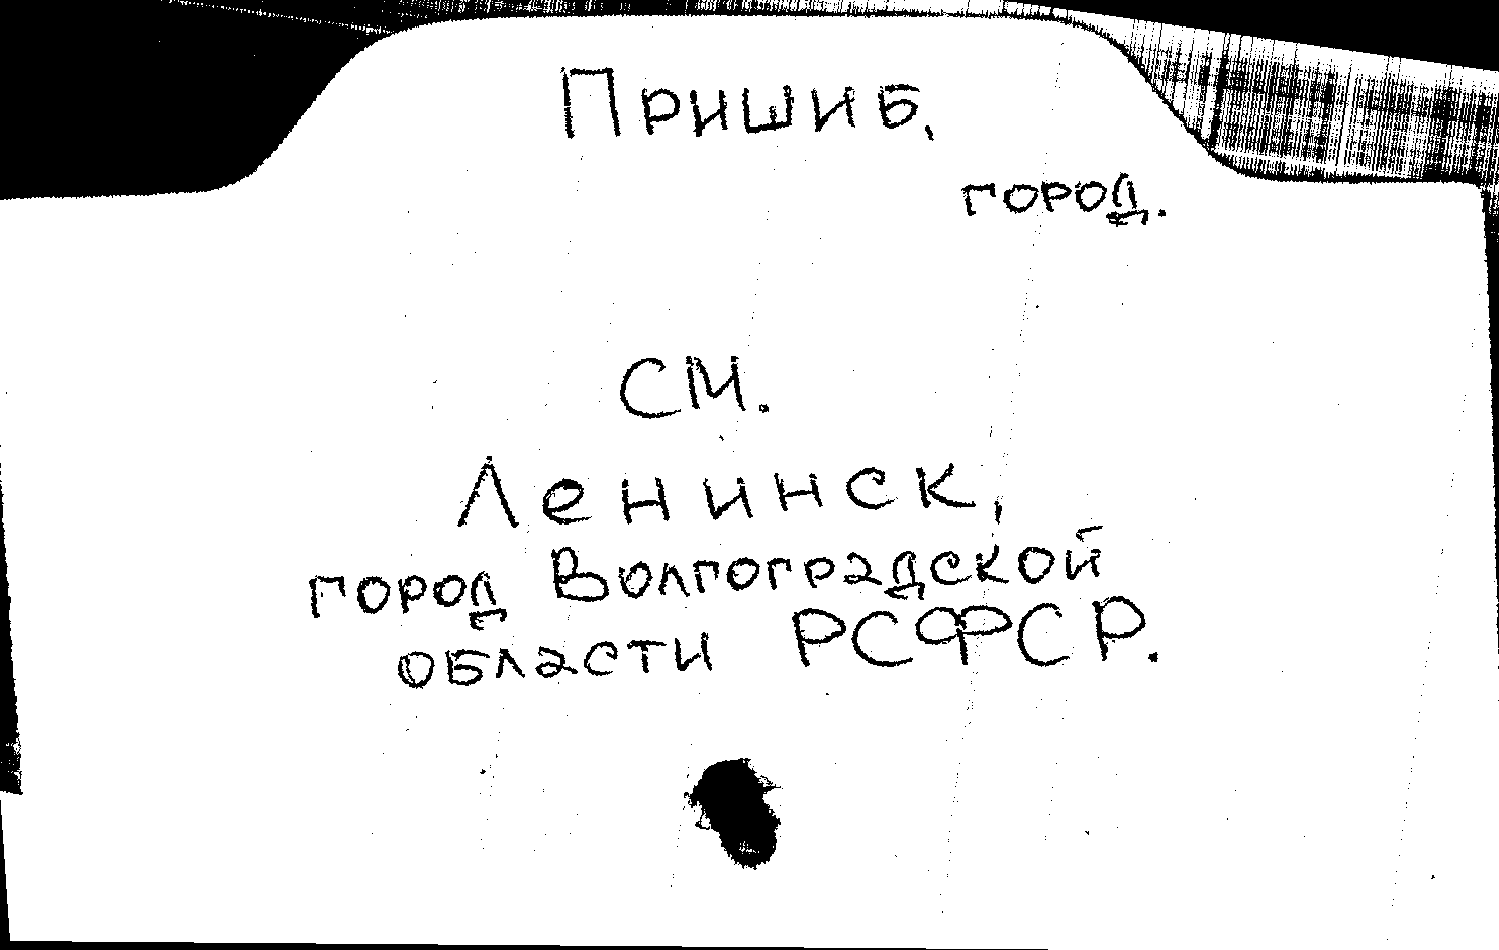 Пришиб,
город.
см.
Ленинск,
город Волгоградской
области РСФСР.